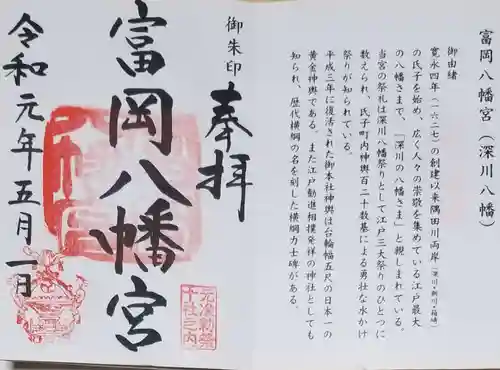 富岡八幡宮(深川八幡)
御由緒
寛永四年(一六二七)の創建以来隅田川両岸(深川・新川・箱崎)
の氏子を始め、広く人々の崇敬を集めている江戸最大
の八幡さまで、「深川の八幡さま」と親しまれている。
当宮の祭礼は深川八幡祭りとして江戸三大祭りのひとつに
数えられ、氏子町内神輿百二十数基による勇壮な水かけ
祭りが知られている。
平成三年に復活された御本社神輿は台輪幅五尺の日本一の
黄金神輿である。また江戸勧進相撲発祥の神社としても
知られ、歴代横綱の名を刻した横綱力士碑がある。
御朱印
奉拝
富岡八幡宮
令和元年五月一日
元准勅祭
十社之内